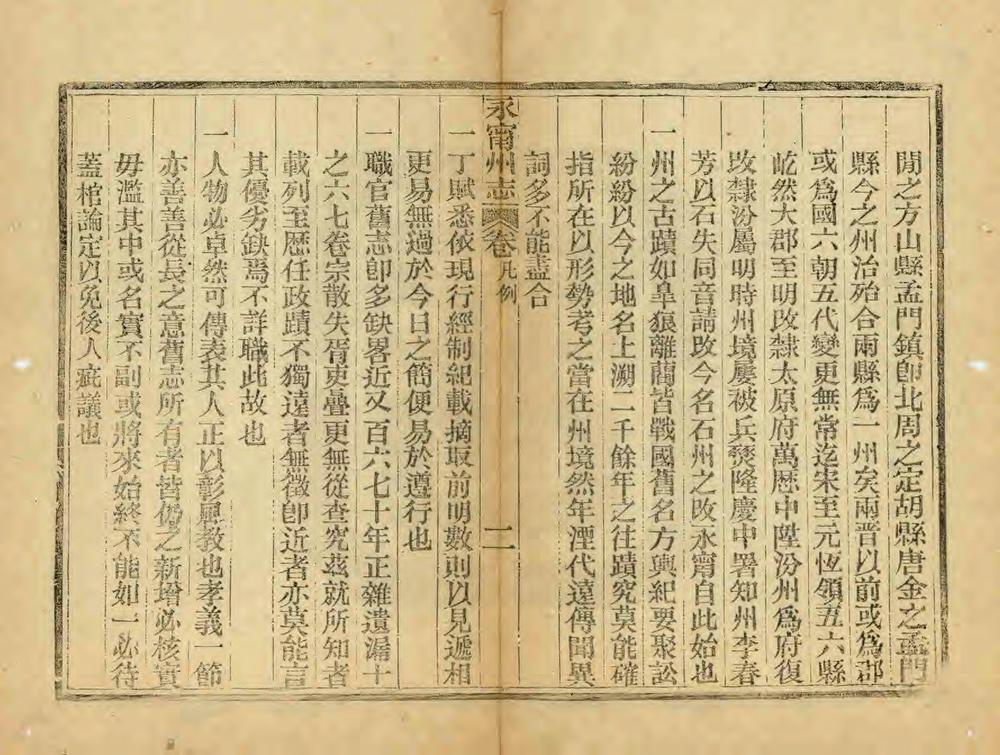 閒之方山縣孟門鎮卽北周之定胡縣唐金之孟門
縣今之州治殆合兩縣爲一州矣兩晋以前或爲郡
或爲國六朝五代變更無常迄宋至元恆領五六縣
屹然大郡至明改隸太原府萬歷中陞汾州爲府復
改隸汾屬明時州境屢被兵燹隆慶中署知州李春
芳以石失同音請改今名石州之改永甯自此始也
一州之古蹟如臯狼離藺皆戰國舊名方輿紀要聚訟
紛紛以今之地名上溯二千餘年之往蹟究莫能確
指所在以形勢考之當在州境然年湮代遠傳聞異
詞多不能盡合
永甯州志 卷 凡例 二
一丁賦悉依現行經制紀載摘取前明數則以見遞相
更易無過於今日之簡便易於遵行也
一職官舊志卽多缺畧近又百六七十年正雜遺漏十
之六七卷宗散失胥吏疊更無從查究茲就所知者
載列至歷任政蹟不獨遠者無徵卽近者亦莫能言
其優劣缺焉不詳職此故也
一人物必卓然可傳表其人正以彰興教也孝義一節
亦善善從長之意舊志所有者皆仍之新增必核實
毋濫其中或名實不副或將來始終不能如一必待
蓋棺論定以免後人疵議也